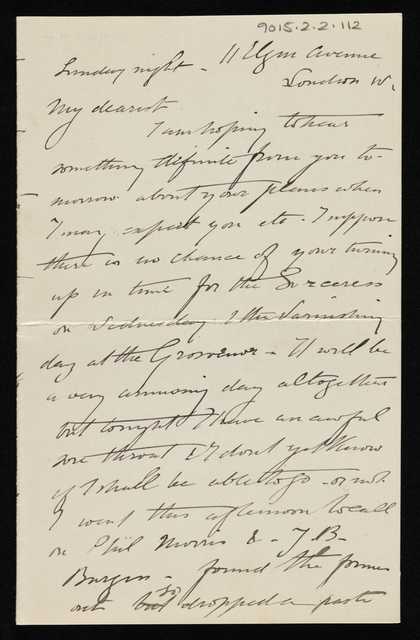 9015.2.2.112
11 Elgin Avenue
Sunday night -
London W.
My dearest
I am hoping to hear
something definite from you to-
morrow about your plans when
I may expect you etc. I suppose
there is no chance of your turning
up in time for the Sorceress
on Wednesday & the Varnishing
day at the Grosvenor - It will be
a very amusing day altogether
but tonight I have an awful
sore throat & I don't yet know
if I shall be able to go - or not
I went this afternoon to call
on Phil Morris & - J. B -
Burgess - found the former
out so dropped a paste